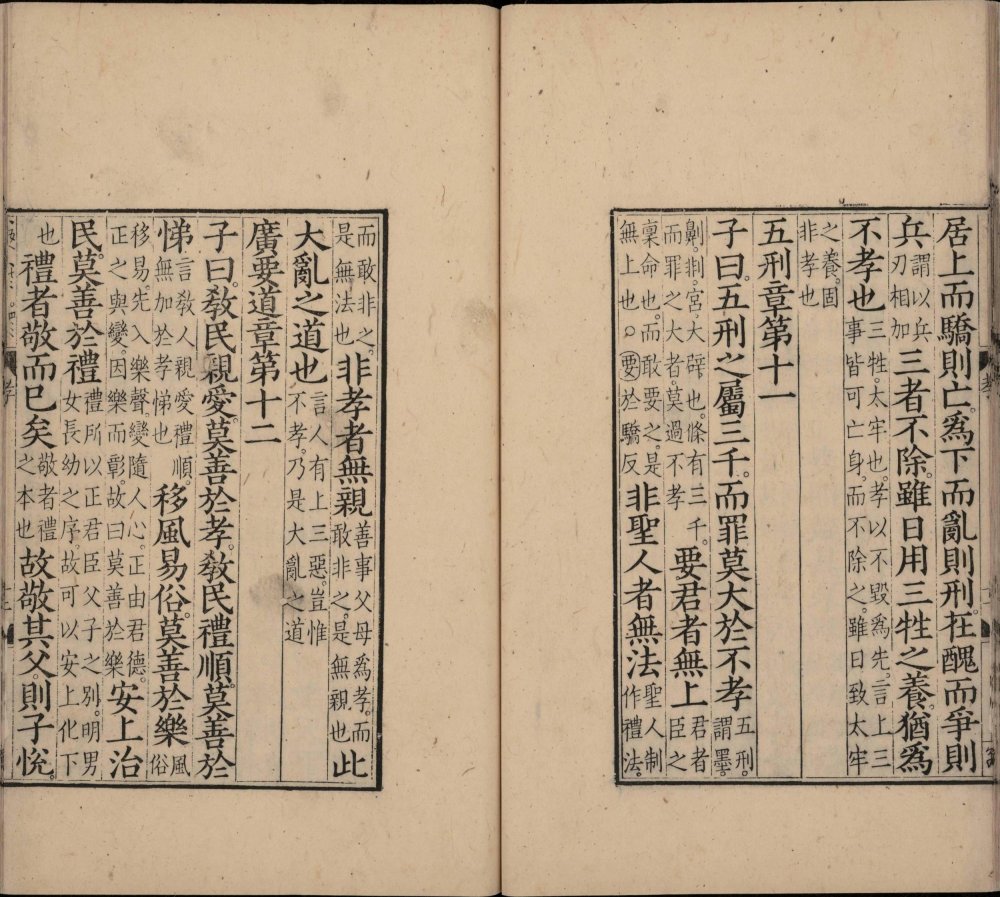 居上而驕則亡。爲下而亂則刑。在醜而爭則
兵謂以兵刃相加三者不除。雖日用三牲之養。猶爲
不孝也三牲。太牢也。孝以不毀爲先。言上三事皆可亡身。而不除之。雖日致太牢
之養。固非孝也
五刑章第十一
子曰。五刑之屬三千。而罪莫大於不孝五刑。謂墨。
劓。剕。宮。大辟也。條有三千。而罪之大者。莫過不孝要君者無上君者臣之
稟命也。而敢要之。是無上也。○要於驕反非聖人者無法聖人制作禮法。
而敢非之。是無法也非孝者無親善事父母爲孝。而敢非之。是無親也此
大亂之道也言人有上三惡。豈惟不孝。乃是大亂之道
廣要道章第十二
子曰。敎民親愛。莫善於孝。敎民禮順。莫善於
悌言敎人親愛禮順。無加於孝悌也移風易俗。莫善於樂風俗
移易。先入樂聲。變隨人心。正由君德。正之與變。因樂而彰。故曰莫善於樂安上治
民。莫善於禮禮所以正君臣父子之別。明男女長幼之序。故可以安上化下
也禮者敬而已矣敬者禮之本也故敬其父。則子悅。